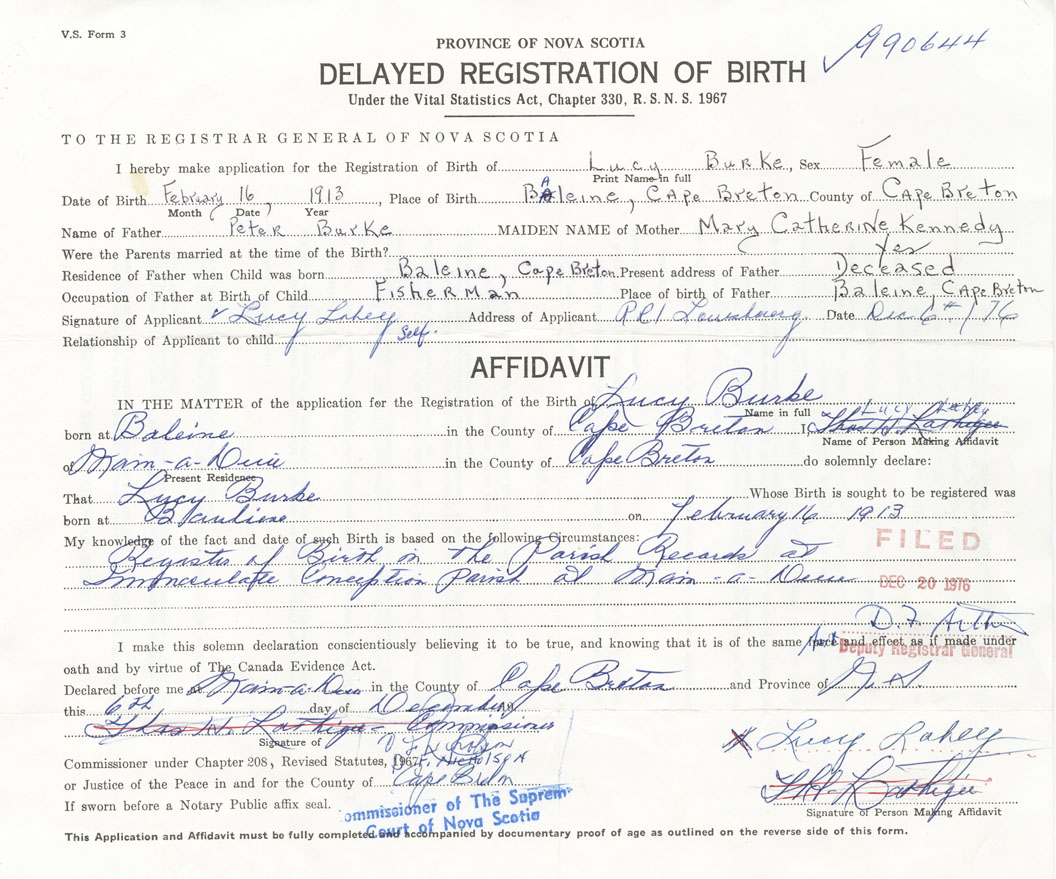 V.S. Form 3
990644
PROVINCE OF NOVA SCOTIA
DELAYED REGISTRATION OF BIRTH
Under the Vital Statistics Act, Chapter 330, R. S. N. S. 1967
TO THE REGISTRAR GENERAL OF NOVA SCOTIA
I hereby make application for the Registration of Birth of Lucy Burke, Sex Female
Print Name in full
Date of Birth February 16, 1913, Place of Birth BAleine, Cape Breton County of Cape Breton
Month Date Year
Name of Father Peter Burke MAIDEN NAME of Mother Mary Catherine Kennedy
Were the Parents married at the time of the Birth? Yes
Residence of Father when Child was born Baleine, Cape Breton. Present address of Father Deceased
Occupation of Father at Birth of Child Fisherman Place of birth of Father Baleine, Cape Breton
Signature of Applicant Lucy Lahey Address of Applicant RR1 Louisbourg Date Dec 6th /76
Relationship of Applicant to child Self.
AFFIDAVIT
IN THE MATTER of the application for the Registration of the Birth of Lucy Burke
Name in full Lucy Lahey
born at Baleine in the County of Cape Breton
Name of Person Making Affidavit
of Main-a-Dieu in the County of Cape Breton do solemnly declare:
Present Residence
That Lucy Burke Whose Birth is sought to be registered was
born at on February 16 1913
My knowledge of the fact and date of such Birth is based on the following Circumstances:
FILED
Register of Birth in the Parish Records at
Immaculate Conception Parish at Main-a-Dieu
DEC 20 1976
D. F.
I make this solemn declaration conscientiously believing it to be true, and knowing that it is of the same force and effect as if made under
Deputy Registrar General
oath and by virtue of The Canada Evidence Act.
Declared before me at Main-a-Dieu in the County of Cape Breton and Province of N. S.
this 6th day of December 19
Commissioner
Signature of
Lucy Lahey
Commissioner under Chapter 208, Revised Statutes, 1967
or Justice of the Peace in and for the County of Cape Breton
If sworn before a Notary Public affix seal.
Commissioner of The Supreme
Court of Nova Scotia
Signature of Person Making Affidavit
This Application and Affidavit must be fully completed and accompanied by documentary proof of age as outlined on the reverse side of this form.